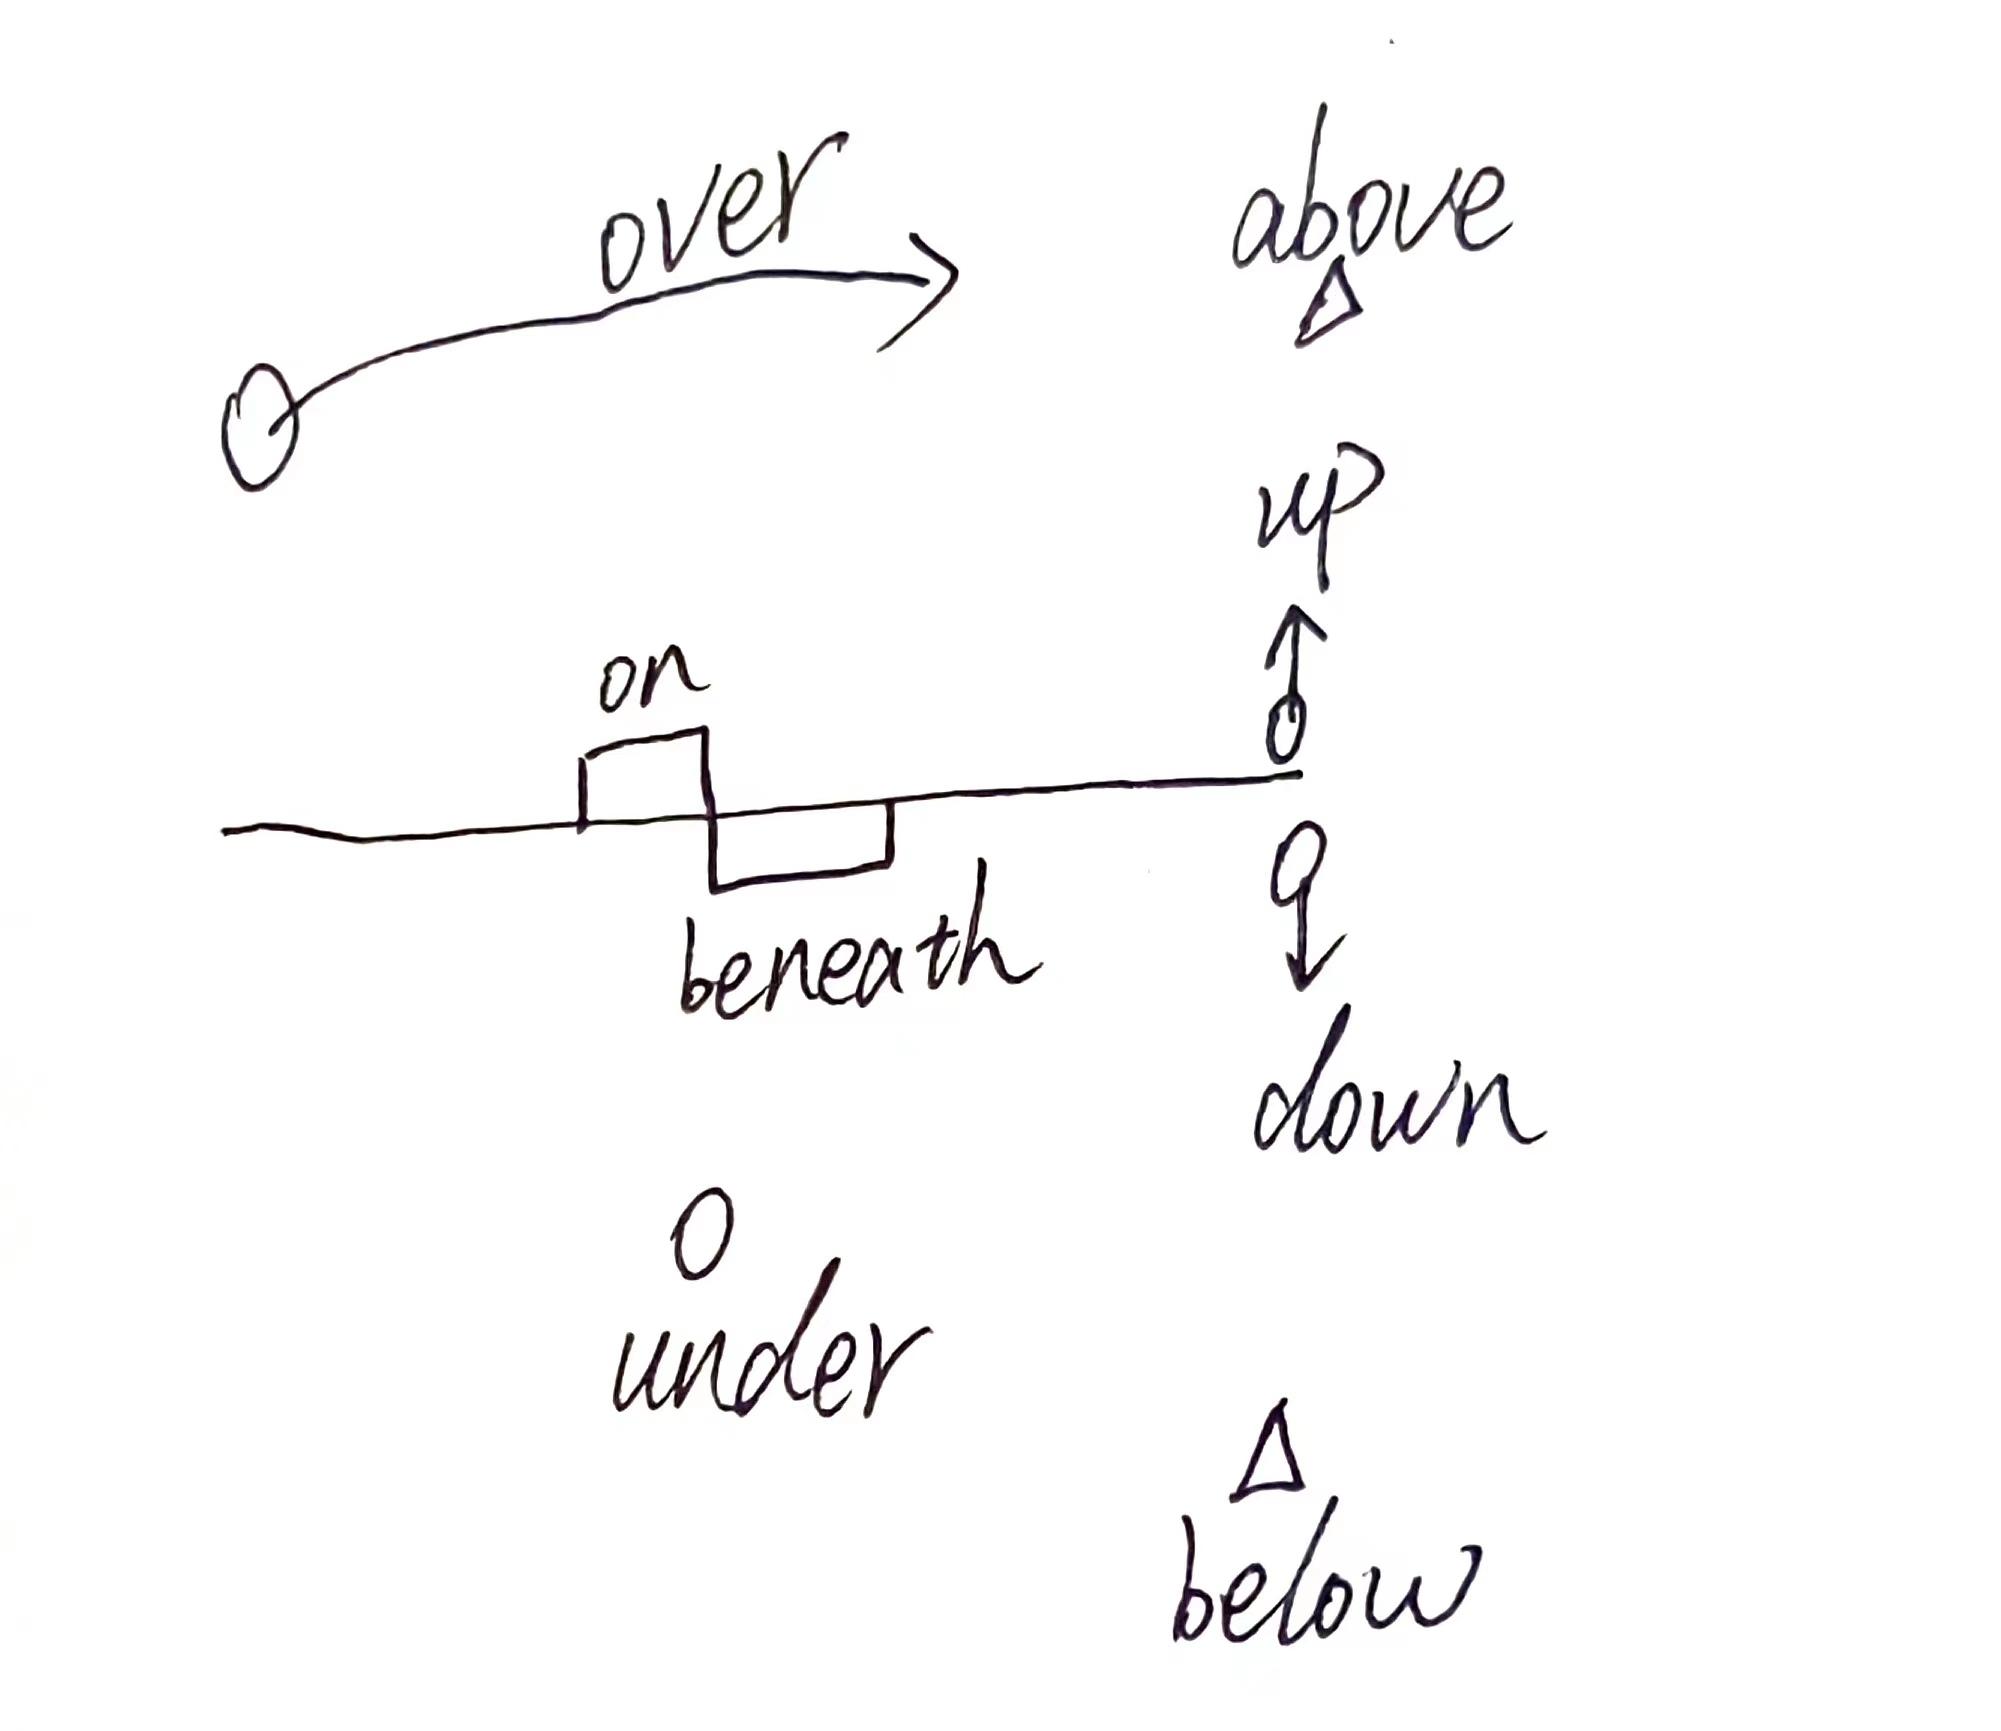 over
above
up
on
beneath
down
under
below